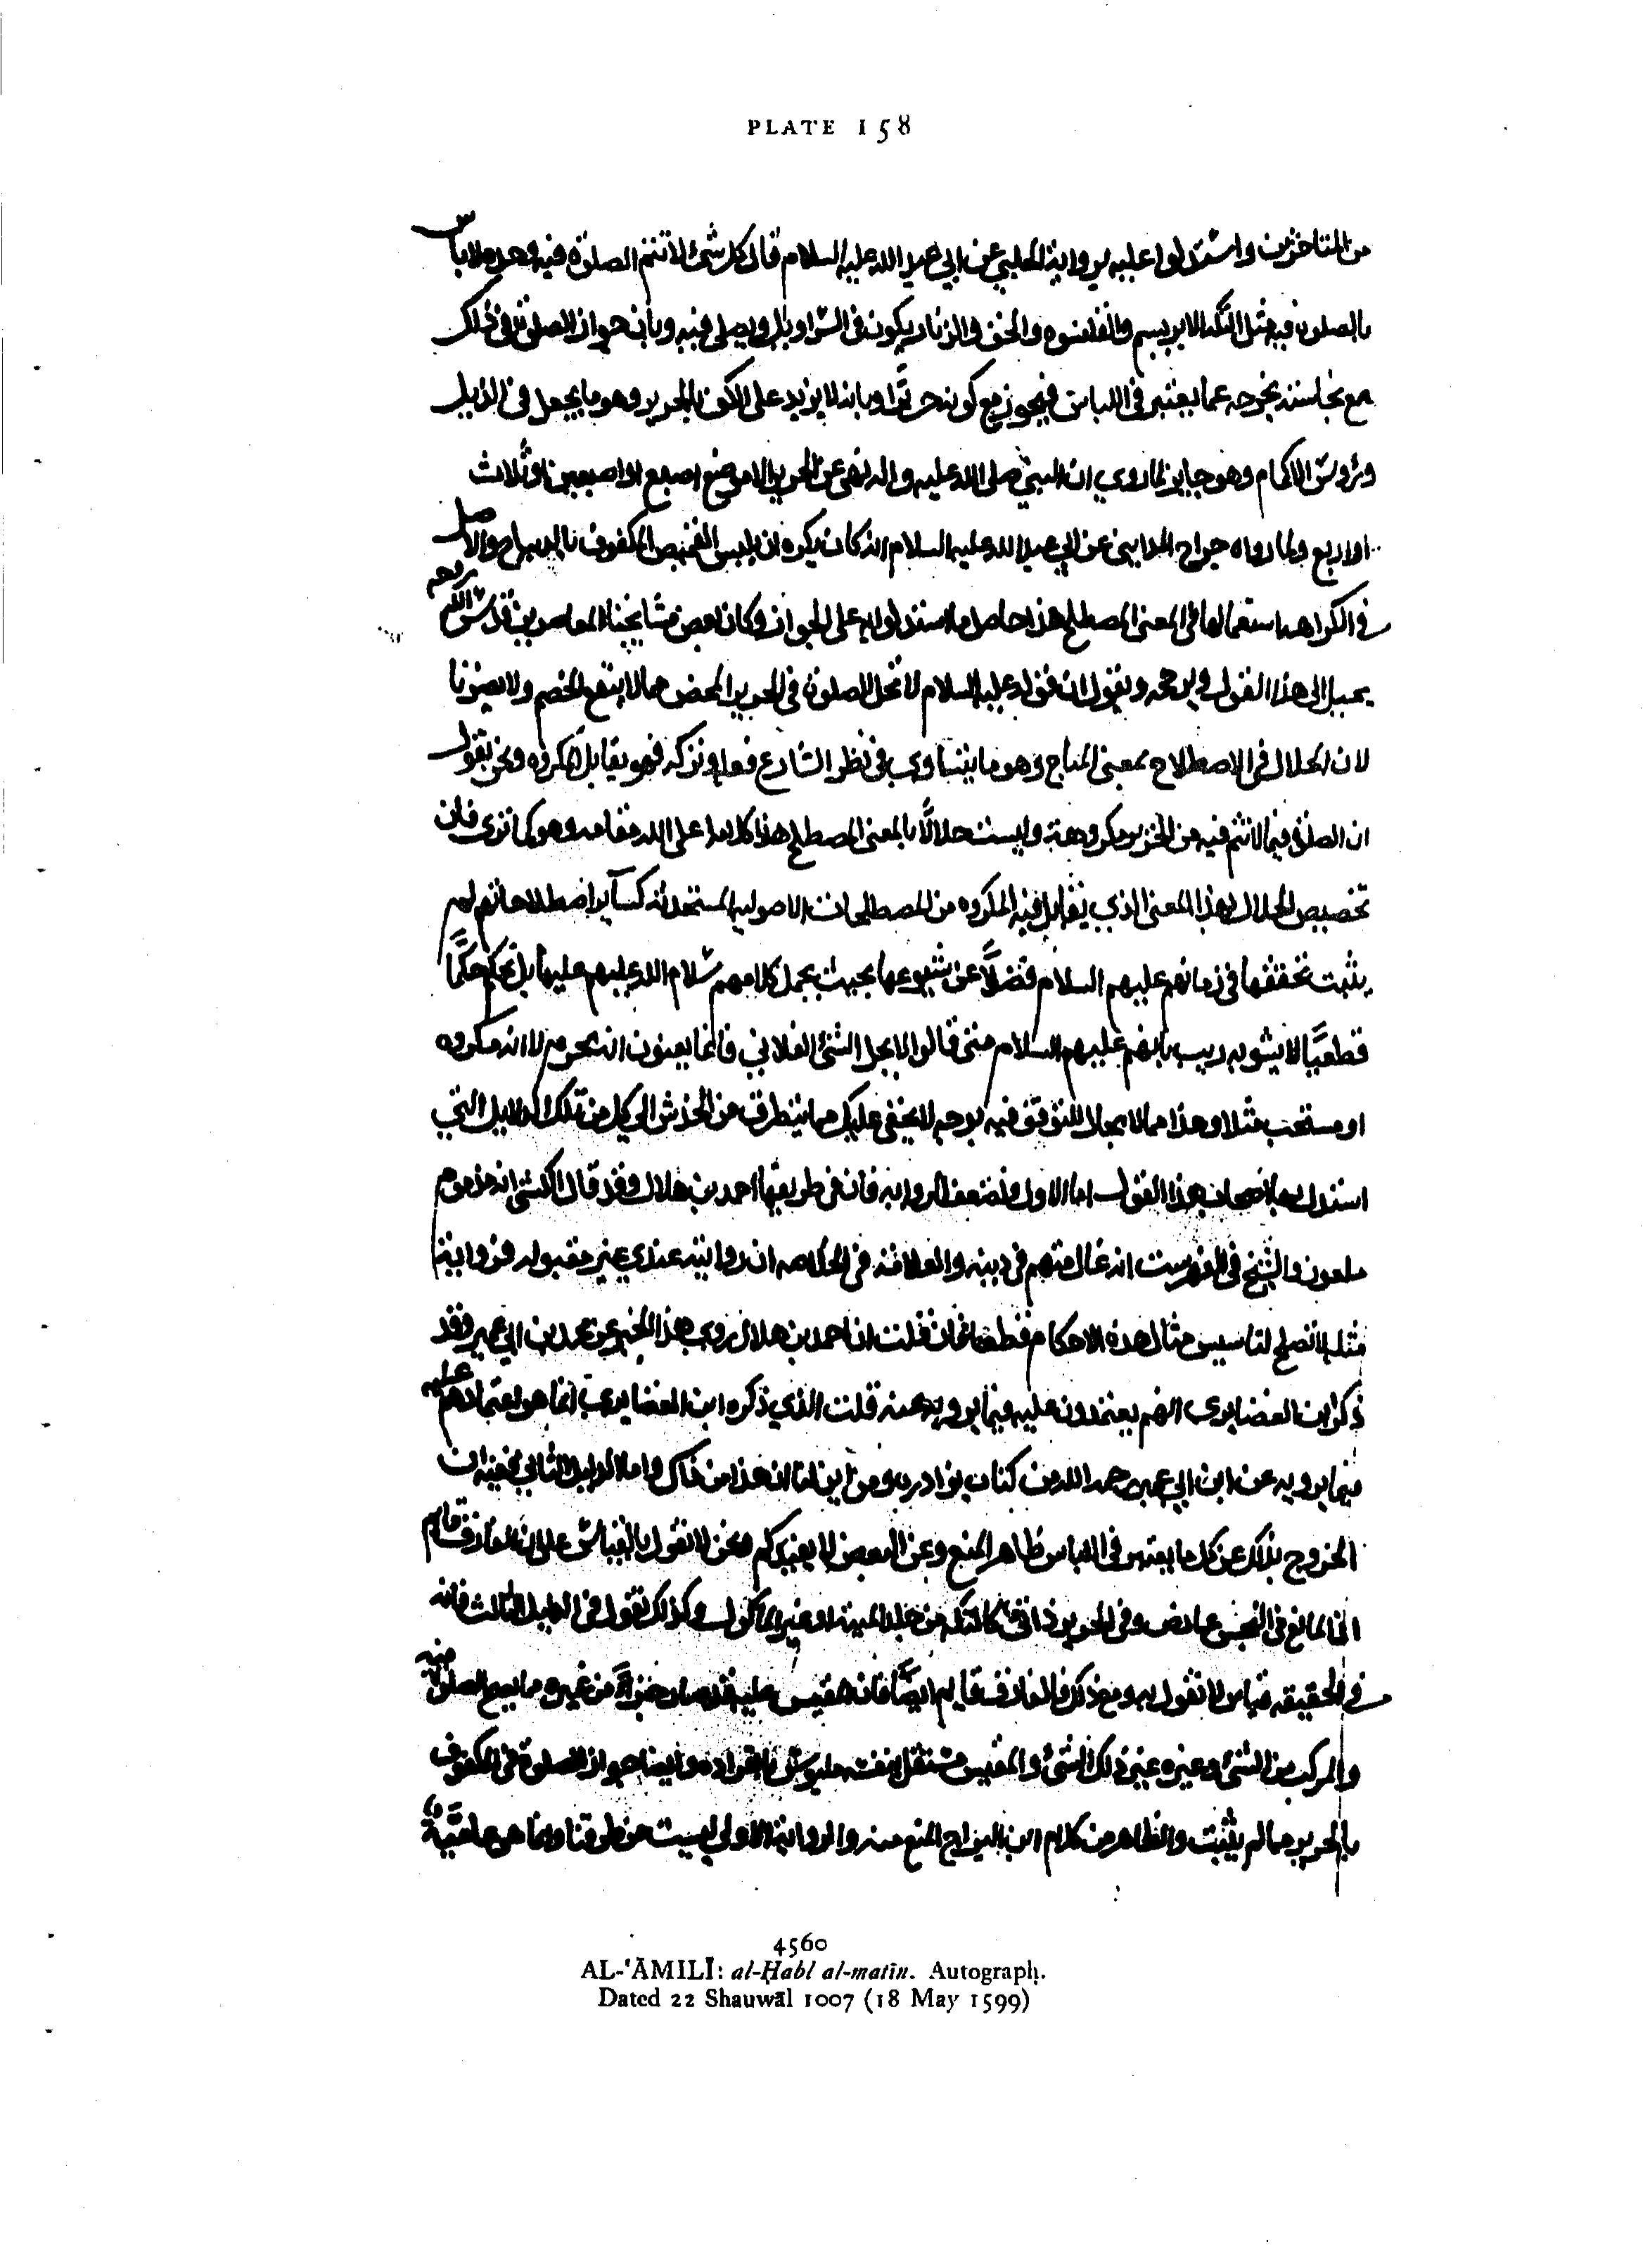 PLATE 158
من المتاخرين واستدلوا عليه برواية الحلبي عن ابي عبد الله عليه السلام قال كل شئ لا تتم الصلوة فيه وحده فلا باس
بالصلوة فيه مثل التكة الابريسم والقلنسوة والخف والزنار يكون في السراويل ويصلى فيه وبان جواز الصلوة في ذلك
مع نجاسته يخرجه عما يعتبر في اللباس فيجوز مع كونه حريرا وبانه لا يزيد على الكف بالحرير وهو ما يجعل في الذيل
ورؤس الاكمام وهو جايز لما روي ان النبي صلى الله عليه واله نهى عن الحرير الا موضع اصبع او اصبعين او ثلاث
او اربع ولما رواه جراح المدايني عن ابي عبد الله عليه السلام انه كان يكره ان يلبس القميص المكفوف بالديباج والاصل
في الكراهة استعمالها في المعنى المصطلح هذا حاصل ما استدلوا به على الجواز وكان بعض مشايخنا المعاصرين قدس الله روحهم
يميل الى هذا القول ويرجحه ويقول ان قوله عليه السلام لا تحل الصلوة في الحرير المحض مما لا ينفع الخصم ولا يضرنا
لان الحلال في الاصطلاح بمعنى المباح وهو ما يتساوى في نظر الشارع فعله وتركه فهو يقابل المكروه ونحن نقول
ان الصلوة فيما لا تتم فيه من الحرير مكروهة وليست حلالا بالمعنى المصطلح هذا كلامه اعلى الله مقامه وهو كما ترى فان
تخصيص الحلال بهذا المعنى الذي يقابل فيه المكروه من المصطلحات الاصولية المستحدثة كساير اصطلاحاتهم لم
يثبت تحققها في زمانهم عليهم السلام فضلا عن شيوعها بحيث يحمل كلامهم سلام الله عليهم عليها بل نحكم حكما
قطعيا لا يشوبه ريب بانهم عليهم السلام متى قالوا لا يحل الشئ الفلاني فانما يعنون انه يحرم لا انه مكروه
او مستحب مثلا وهذا مما لا مجال للتوقف فيه بوجه ولا يخفى عليك ما يتطرق من الخدش الى كل من تلك الدلايل التي
استدل بها اصحاب هذا القول اما الاول فلضعف الرواية فان في طريقها احمد بن هلال وقد قال الكشي انه مذموم
ملعون والشيخ في الفهرست انه غال متهم في دينه والعلامة في الخلاصة ان روايته عندي غير مقبولة فرواية
مثله لا تصلح لتاسيس مثال هذه الاحكام قطعا فان قلت ان احمد بن هلال روى هذا الخبر عن محمد بن ابي عمير وقد
ذكر ابن الغضايري انهم يعتمدون عليه فيما يرويه عنه قلت الذي ذكره ابن الغضايري انما هو اعتمادهم عليه
فيما يرويه عن ابن ابي عمير رحمه الله من كتاب نوادره ومن اين لنا ان هذا من ذاك واما الدليل الثاني ففيه ان
الخروج بذلك عن كل ما يعتبر في اللباس ظاهر المنع وعن البعض لا يفيدكم ونحن لا نقول بالقياس على ان الفارق قايم
اذ المانع في النجس عارض وفي الحرير ذاتي كالتكة من جلد الميتة او غير الماكول وكذلك نقول في الدليل الثالث فانه
في الحقيقة قياس لا نقول به ومع ذلك فالفارق قايم ايضا فان المقيس عليه قد صار جزءا من غيره مما يصح الصلوة فيه
والمركب من الشئ وغيره غير ذلك الشئ والمقيس مستقل بنفسه ملبوس بانفراده وايضا جواز الصلوة في المكفوف
بالحرير مما لم يثبت والظاهر من كلام ابن البراج المنع منه والرواية الاولى ليست من طرقنا وانما هي عامية و
4560
AL-ʿĀMILĪ: al-Ḥabl al-matīn. Autograph.
Dated 22 Shauwāl 1007 (18 May 1599)